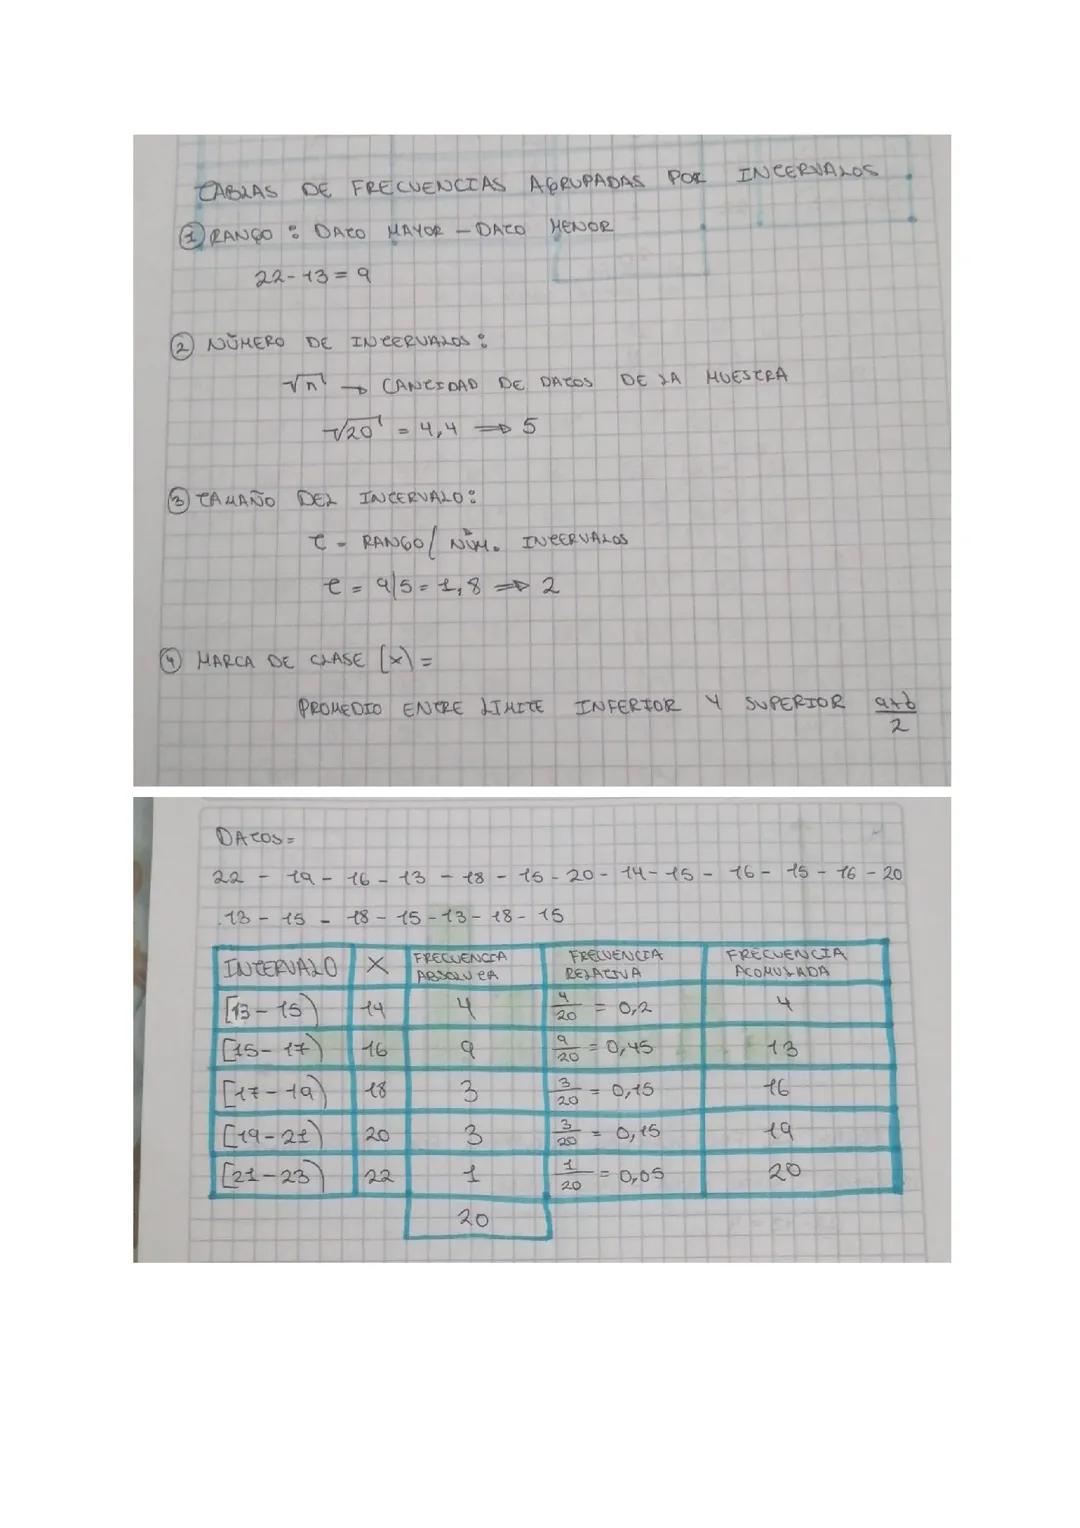 TABLAS DE FRECUENCIAS AGRUPADAS POR INTERVALOS
① RANGO : DATO MAYOR - DATO MENOR
22 - 13 = 9
② NÚMERO DE INTERVALOS :
√n → CANTIDAD DE DATOS DE LA MUESTRA
√20 = 4,4 ⇒ 5
③ TAMAÑO DEL INTERVALO :
T = RANGO / NÚM. INTERVALOS
t = 9/5 = 1,8 ⇒ 2
④ MARCA DE CLASE [x] =
PROMEDIO ENTRE LIMITE INFERIOR Y SUPERIOR a+b/2
DATOS =
22 - 19 - 16 - 13 - 18 - 15 - 20 - 14 - 15 - 16 - 15 - 16 - 20
13 - 15 - 18 - 15 - 13 - 18 - 15
INTERVALO X FRECUENCIA ABSOLUTA FRECUENCIA RELATIVA FRECUENCIA ACOMULADA
[13 - 15) 14 4 4/20 = 0,2 4
[15 - 17) 16 9 9/20 = 0,45 13
[17 - 19) 18 3 3/20 = 0,15 16
[19 - 21) 20 3 3/20 = 0,15 19
[21 - 23) 22 1 1/20 = 0,05 20
20